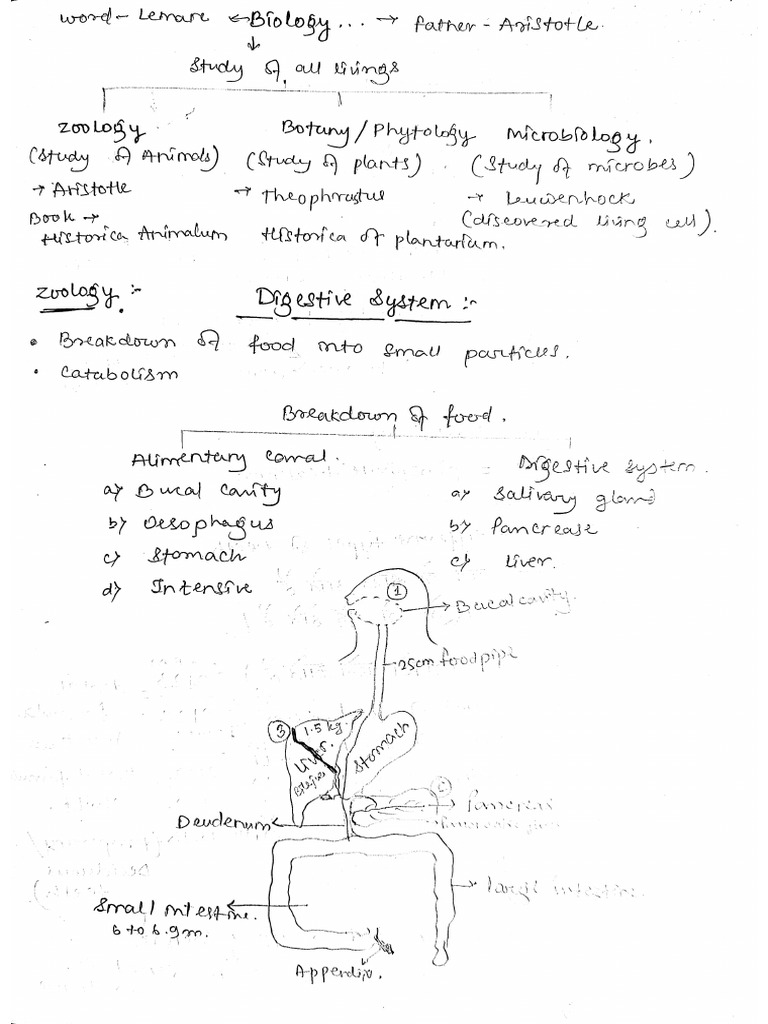 word - Lemarc ← Biology... → father - Aristotle.
Study of all livings
zoology Botany / Phytology Microbiology.
(Study of Animals) (Study of plants) (Study of microbes)
→ Aristotle → Theophrastus → Leuwenhock
Book → (discovered living cell).
Historica Animalum Historica of plantarium.
zoology :- Digestive System :-
• Breakdown of food into small particles.
• Catabolism
Breakdown of food.
Alimentary canal. Digestive system.
a) Bucal cavity a) Salivary gland
b) Oesophagus b) Pancrease
c) Stomach c) Liver.
d) Intensive
1
→ Bucal cavity.
→ 25cm foodpipe
3 1.5 kg.
Liver. Stomach
Pancreas
Deudenum
large intestine.
Small intestine.
6 to 6.9m.
Appendix.